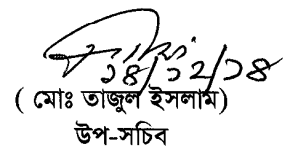 ১৪/১২/১৪
( মোঃ তাজুল ইসলাম)
উপ-সচিব